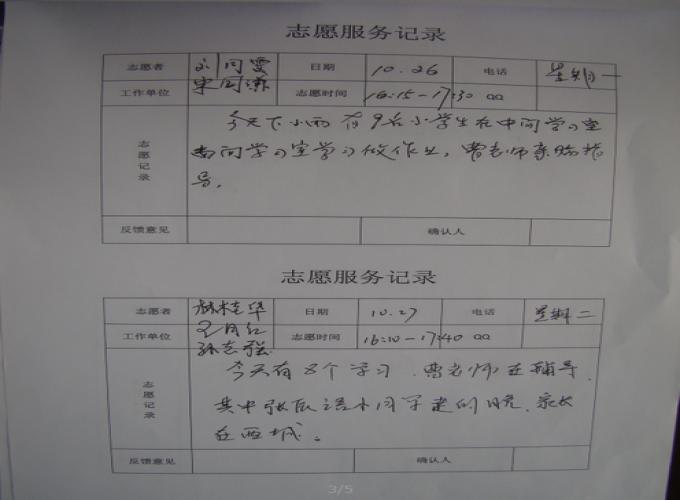 志愿服务记录
志愿者 刘同雯 日期 10.26 电话 星期一
工作单位 志愿时间 16:15-17:30 qq
今天下小雨 有9名小学生在中间学习室
南间学习室学习做作业，曹老师亲临指
导。
志愿记录
反馈意见 确认人
志愿服务记录
志愿者 日期 10.27 电话 星期二
王月红
工作单位 孙志强 志愿时间 16:10-17:40 qq
今天有8个学习.曹老师在辅导.
其中张 语小同学走的晚.家长
在西城。
志愿记录
反馈意见 确认人
3/5